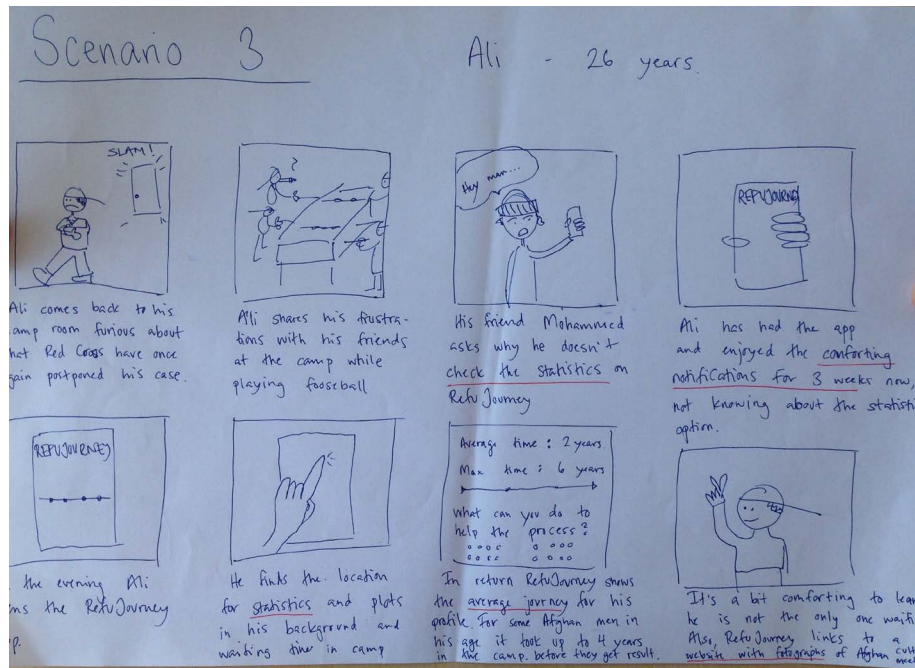 Scenario 3
Ali - 26 years.
SLAM!
Ali comes back to his
amp room furious about
hat Red Cross have once
gain postponed his case.
?
Ali shares his frustra-
tions with his friends
at the camp while
playing fooseball
Hey man...
His friend Mohammed
asks why he doesn't
check the statistics on
RefuJourney
REFUJOURNEY
Ali has had the app
and enjoyed the comforting
notifications for 3 weeks now,
not knowing about the statisti
option.
REFUJOURNEY
the evening Ali
ns the RefuJourney
p.
He finds the location
for statistics and plots
in his background and
waiting time in camp
Average time : 2 years
Max time : 6 years
What can you do to
help the process?
In return RefuJourney shows
the average journey for his
profile. For some Afghan men in
his age it took up to 4 years
in the camp before they get result.
It's a bit comforting to lear
he is not the only one waiti
Also, RefuJourney links to a
website with fotographs of Afghan cult